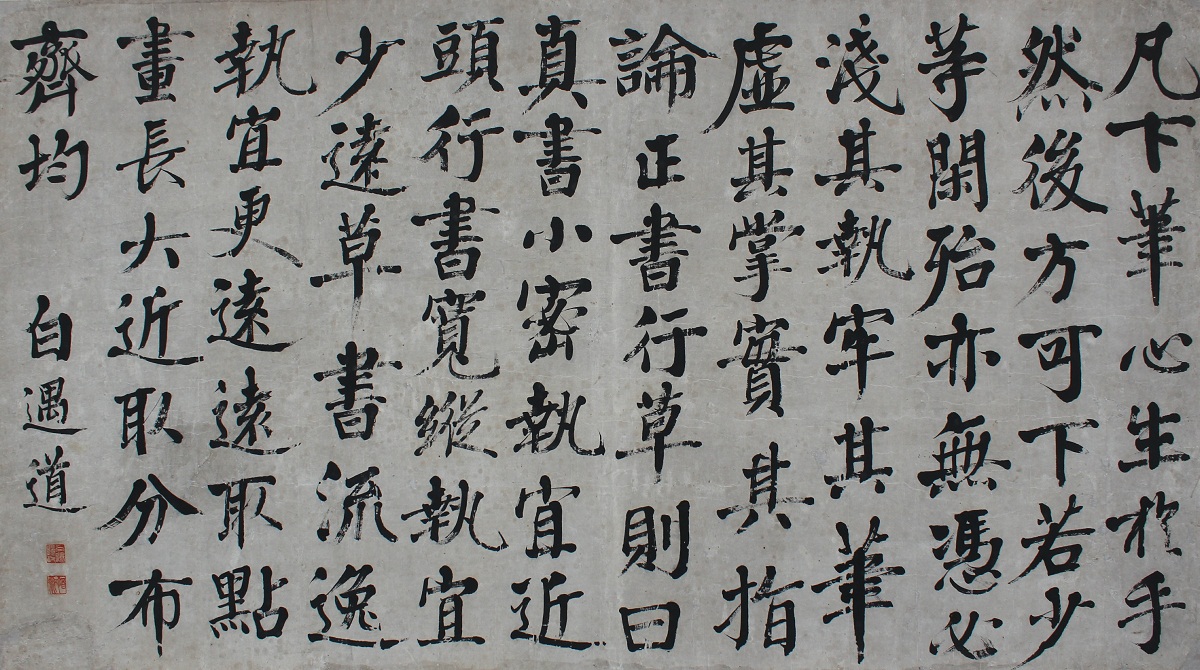 凡下筆心生於手
然後方可下若少
等閑殆亦無憑必
淺其執牢其筆
虛其掌實其指
論正書行草則曰
真書小密執宜近
頭行書寬縱執宜
少遠草書流逸
執宜更遠遠取點
畫長大近取分布
齊均
白遇道